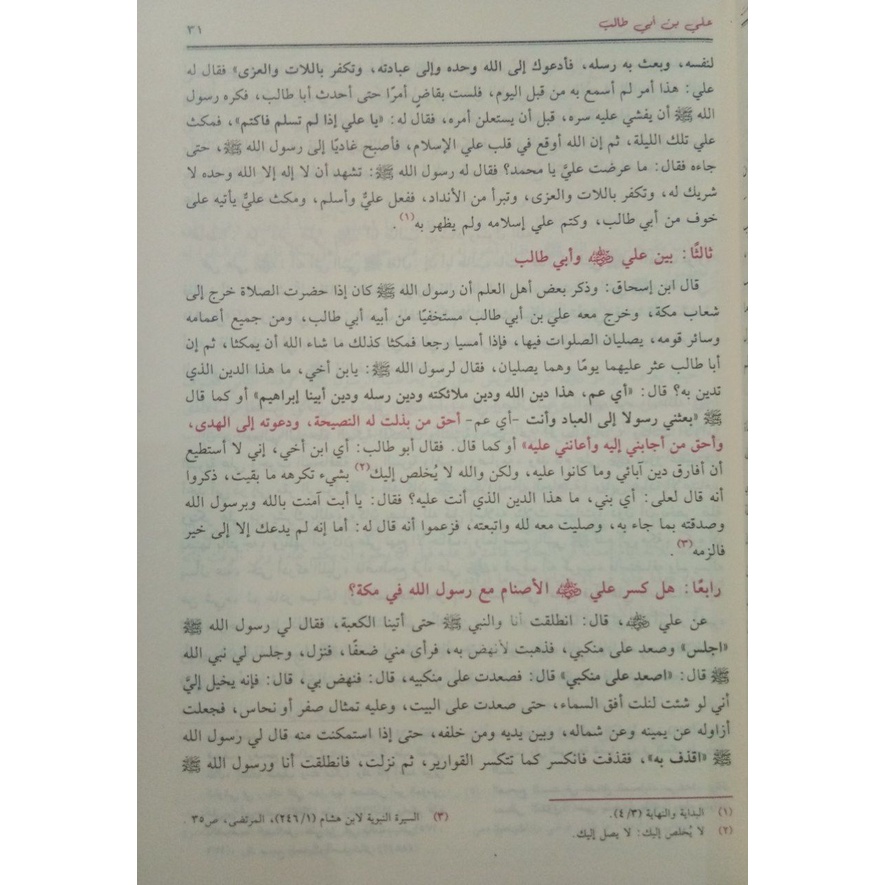 علي بن أبي طالب
٣١
لنفسه، وبعث به رسله، فأدعوك إلى الله وحده وإلى عبادته، وتكفر باللات والعزى» فقال له
علي: هذا أمر لم أسمع به من قبل اليوم، فلست بقاضٍ أمرًا حتى أحدث أبا طالب، فكره رسول
الله ﷺ أن يفشي عليه سره، قبل أن يستعلن أمره، فقال له: «يا علي إذا لم تسلم فاكتم»، فمكث
علي تلك الليلة، ثم إن الله أوقع في قلب علي الإسلام، فأصبح غاديًا إلى رسول الله ﷺ، حتى
جاءه فقال: ما عرضت عليَّ يا محمد؟ فقال له رسول الله ﷺ: تشهد أن لا إله إلا الله وحده لا
شريك له، وتكفر باللات والعزى، وتبرأ من الأنداد، ففعل عليٌّ وأسلم، ومكث عليٌّ يأتيه على
خوف من أبي طالب، وكتم علي إسلامه ولم يظهر به(١).
ثالثًا: بين علي رضي الله عنه وأبي طالب
قال ابن إسحاق: وذكر بعض أهل العلم أن رسول الله ﷺ كان إذا حضرت الصلاة خرج إلى
شعاب مكة، وخرج معه علي بن أبي طالب مستخفيًا من أبيه أبي طالب، ومن جميع أعمامه
وسائر قومه، يصليان الصلوات فيها، فإذا أمسيا رجعا فمكثا كذلك ما شاء الله أن يمكثا، ثم إن
أبا طالب عثر عليهما يومًا وهما يصليان، فقال لرسول الله ﷺ: يابن أخي، ما هذا الدين الذي
تدين به؟ قال: «أي عم، هذا دين الله ودين ملائكته ودين رسله ودين أبينا إبراهيم» أو كما قال
ﷺ «بعثني رسولا إلى العباد وأنت -أي عم- أحق من بذلت له النصيحة، ودعوته إلى الهدى،
وأحق من أجابني إليه وأعانني عليه» أو كما قال. فقال أبو طالب: أي ابن أخي، إني لا أستطيع
أن أفارق دين آبائي وما كانوا عليه، ولكن والله لا يُخلص إليك(٢) بشيء تكرهه ما بقيت، ذكروا
أنه قال لعلى: أي بني، ما هذا الدين الذي أنت عليه؟ فقال: يا أبت آمنت بالله وبرسول الله
وصدقته بما جاء به، وصليت معه لله واتبعته، فزعموا أنه قال له: أما إنه لم يدعك إلا إلى خير
فالزمه(٣).
رابعًا: هل كسر علي رضي الله عنه الأصنام مع رسول الله في مكة؟
عن علي رضي الله عنه، قال: انطلقت أنا والنبي ﷺ حتى أتينا الكعبة، فقال لي رسول الله ﷺ
«اجلس» وصعد على منكبي، فذهبت لأنهض به، فرأى مني ضعفًا، فنزل، وجلس لي نبي الله
ﷺ قال: «اصعد على منكبي» قال: فصعدت على منكبيه، قال: فنهض بي، قال: فإنه يخيل إليَّ
أني لو شئت لنلت أفق السماء، حتى صعدت على البيت، وعليه تمثال صفر أو نحاس، فجعلت
أزاوله عن يمينه وعن شماله، وبين يديه ومن خلفه، حتى إذا استمكنت منه قال لي رسول الله
ﷺ «اقذف به»، فقذفت فانكسر كما تتكسر القوارير، ثم نزلت، فانطلقت أنا ورسول الله ﷺ
(١) البداية والنهاية (٤/٣).
(٢) لا يُخلص إليك: لا يصل إليك.
(٣) السيرة النبوية لابن هشام (٢٤٦/١)، المرتضى، ص٣٥.